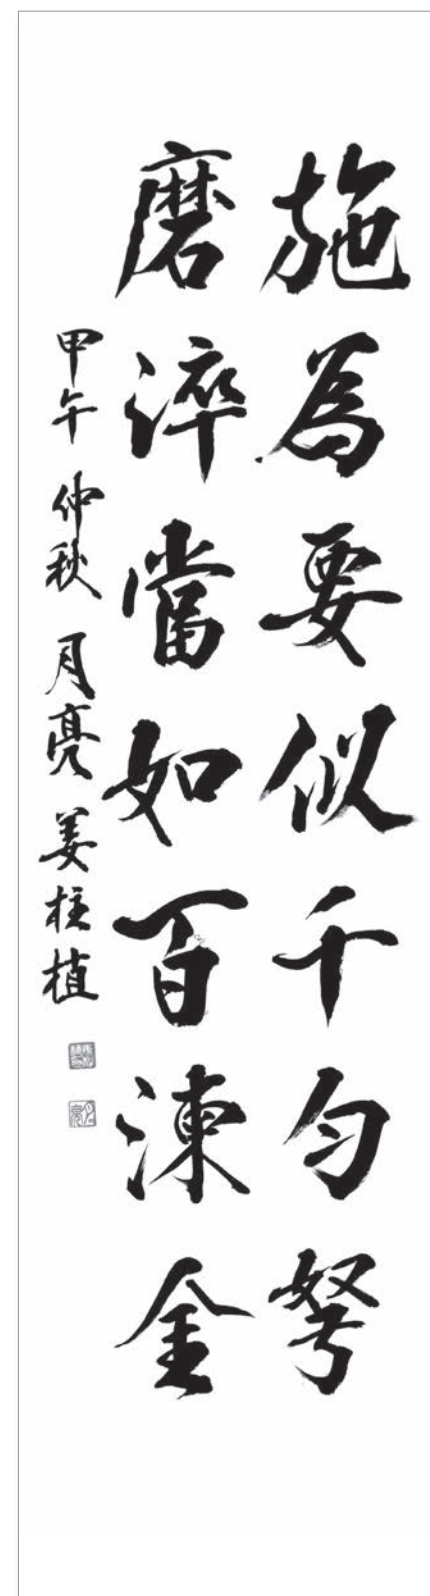 施為要似千匀弩
磨淬當如百湅金
甲午 仲秋 月亮 姜柱植